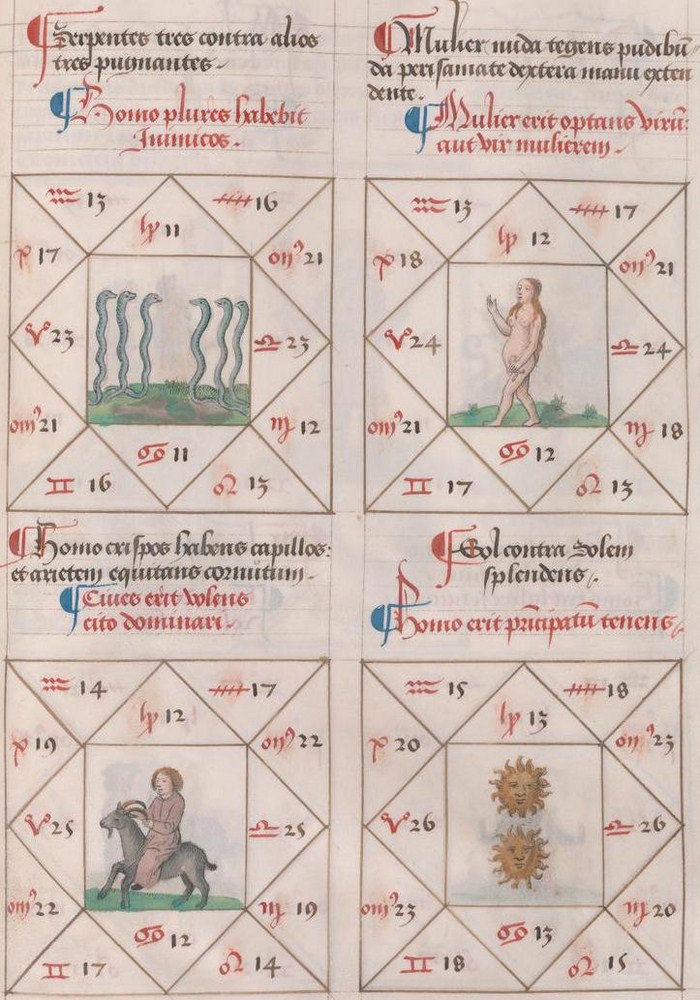 Serpentes tres contra alios
tres pugnantes.
Homo plures habebit
Inimicos.
♒ 13
♑ 11
16
17
21
♈ 23
♎ 23
21
♍ 12
♋ 11
♊ 16
♌ 13
Mulier nuda tegens pudibū
da
dextera manu exten
dente.
Mulier erit optans virū:
aut vir mulierem.
♒ 13
♑ 12
17
18
21
♈ 24
♎ 24
21
♍ 18
♋ 12
♊ 17
♌ 13
Homo crispos habens capillos:
et arietem equitans cornutum.
Ciues erit volens
cito dominari.
♒ 14
♑ 12
17
19
22
♈ 25
♎ 25
22
♍ 19
♋ 12
♊ 17
♌ 14
Sol contra Solem
splendens.
Homo erit pricipatū tenens.
♒ 15
♑ 13
18
20
23
♈ 26
♎ 26
23
♍ 20
♋ 13
♊ 18
♌ 15